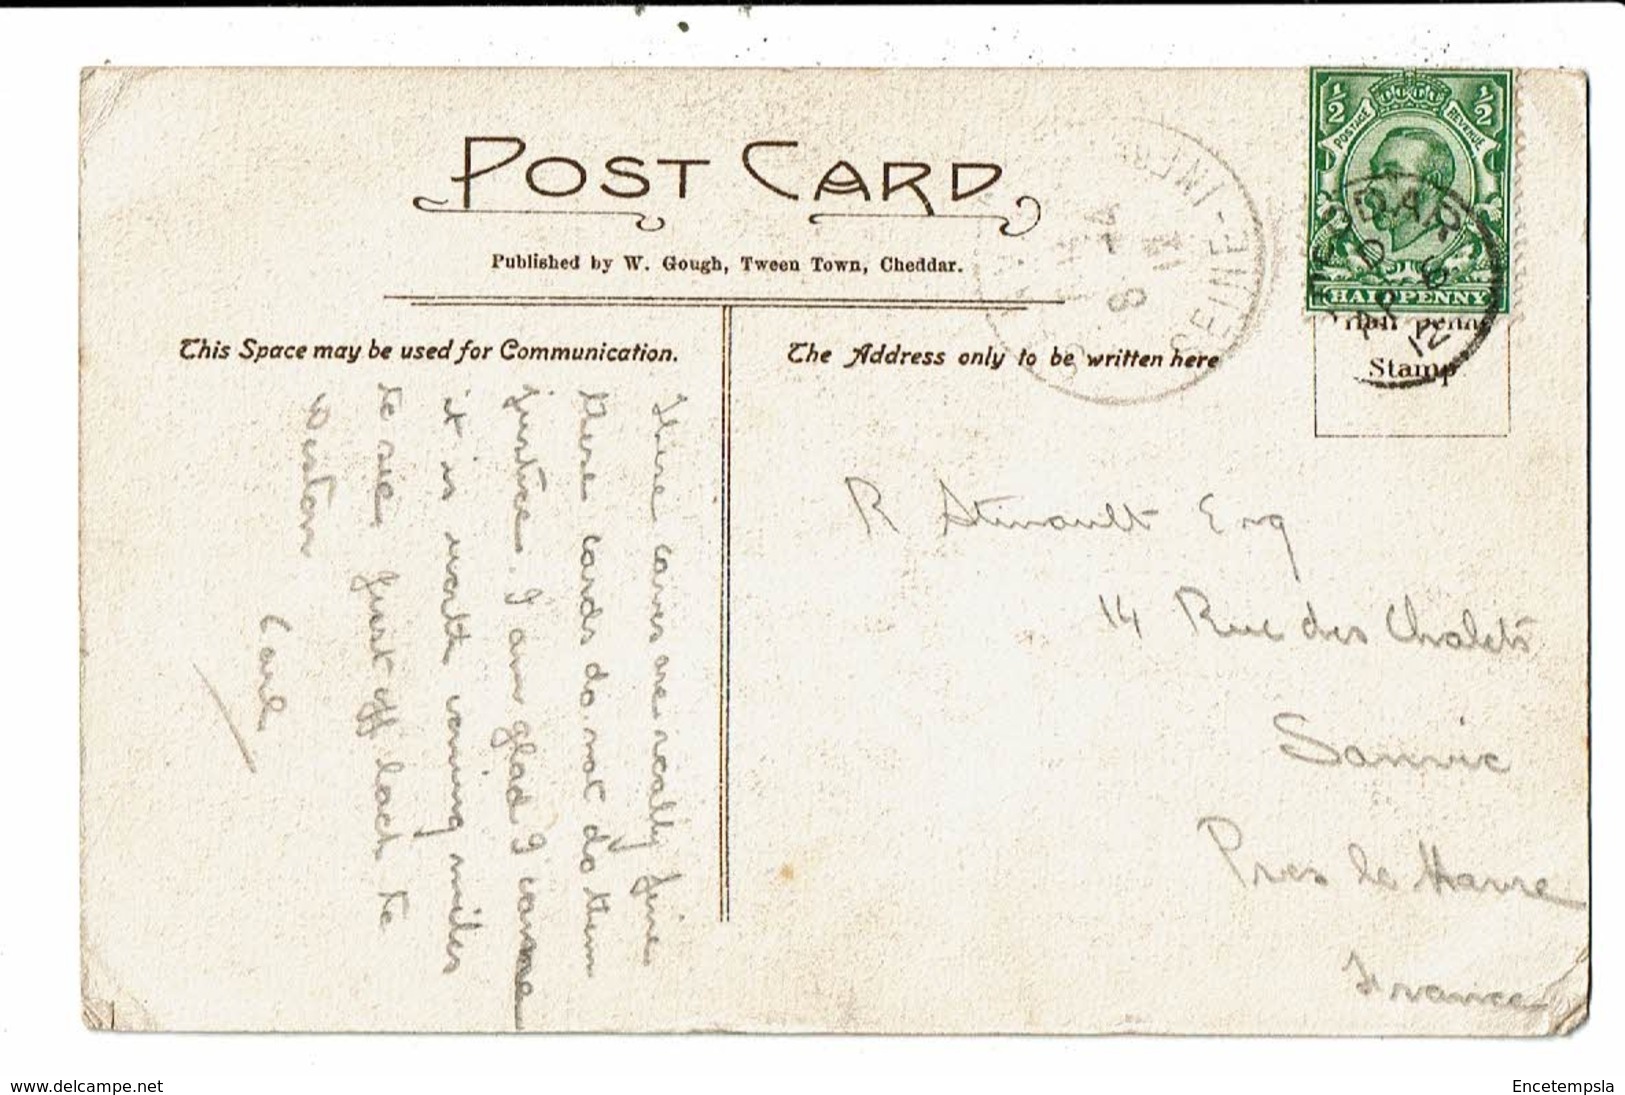 POST CARD
Published by W. Gough, Tween Town, Cheddar.
This Space may be used for Communication.
The Address only to be written here
½ ½
POSTAGE REVENUE
HALFPENNY
Stamp
CHEDDAR
D
AP 6
12
SEINE-INFRE
8 - 4
12
These caves are really fine
these cards do not do them
justice. I am glad I came
it is worth coming miles
to see. Just off back to
Weston
Carl
R Stinault Esq
14 Rue des Chalets
Sanvic
Pres le Havre
France
www.delcampe.net
Encetempsla